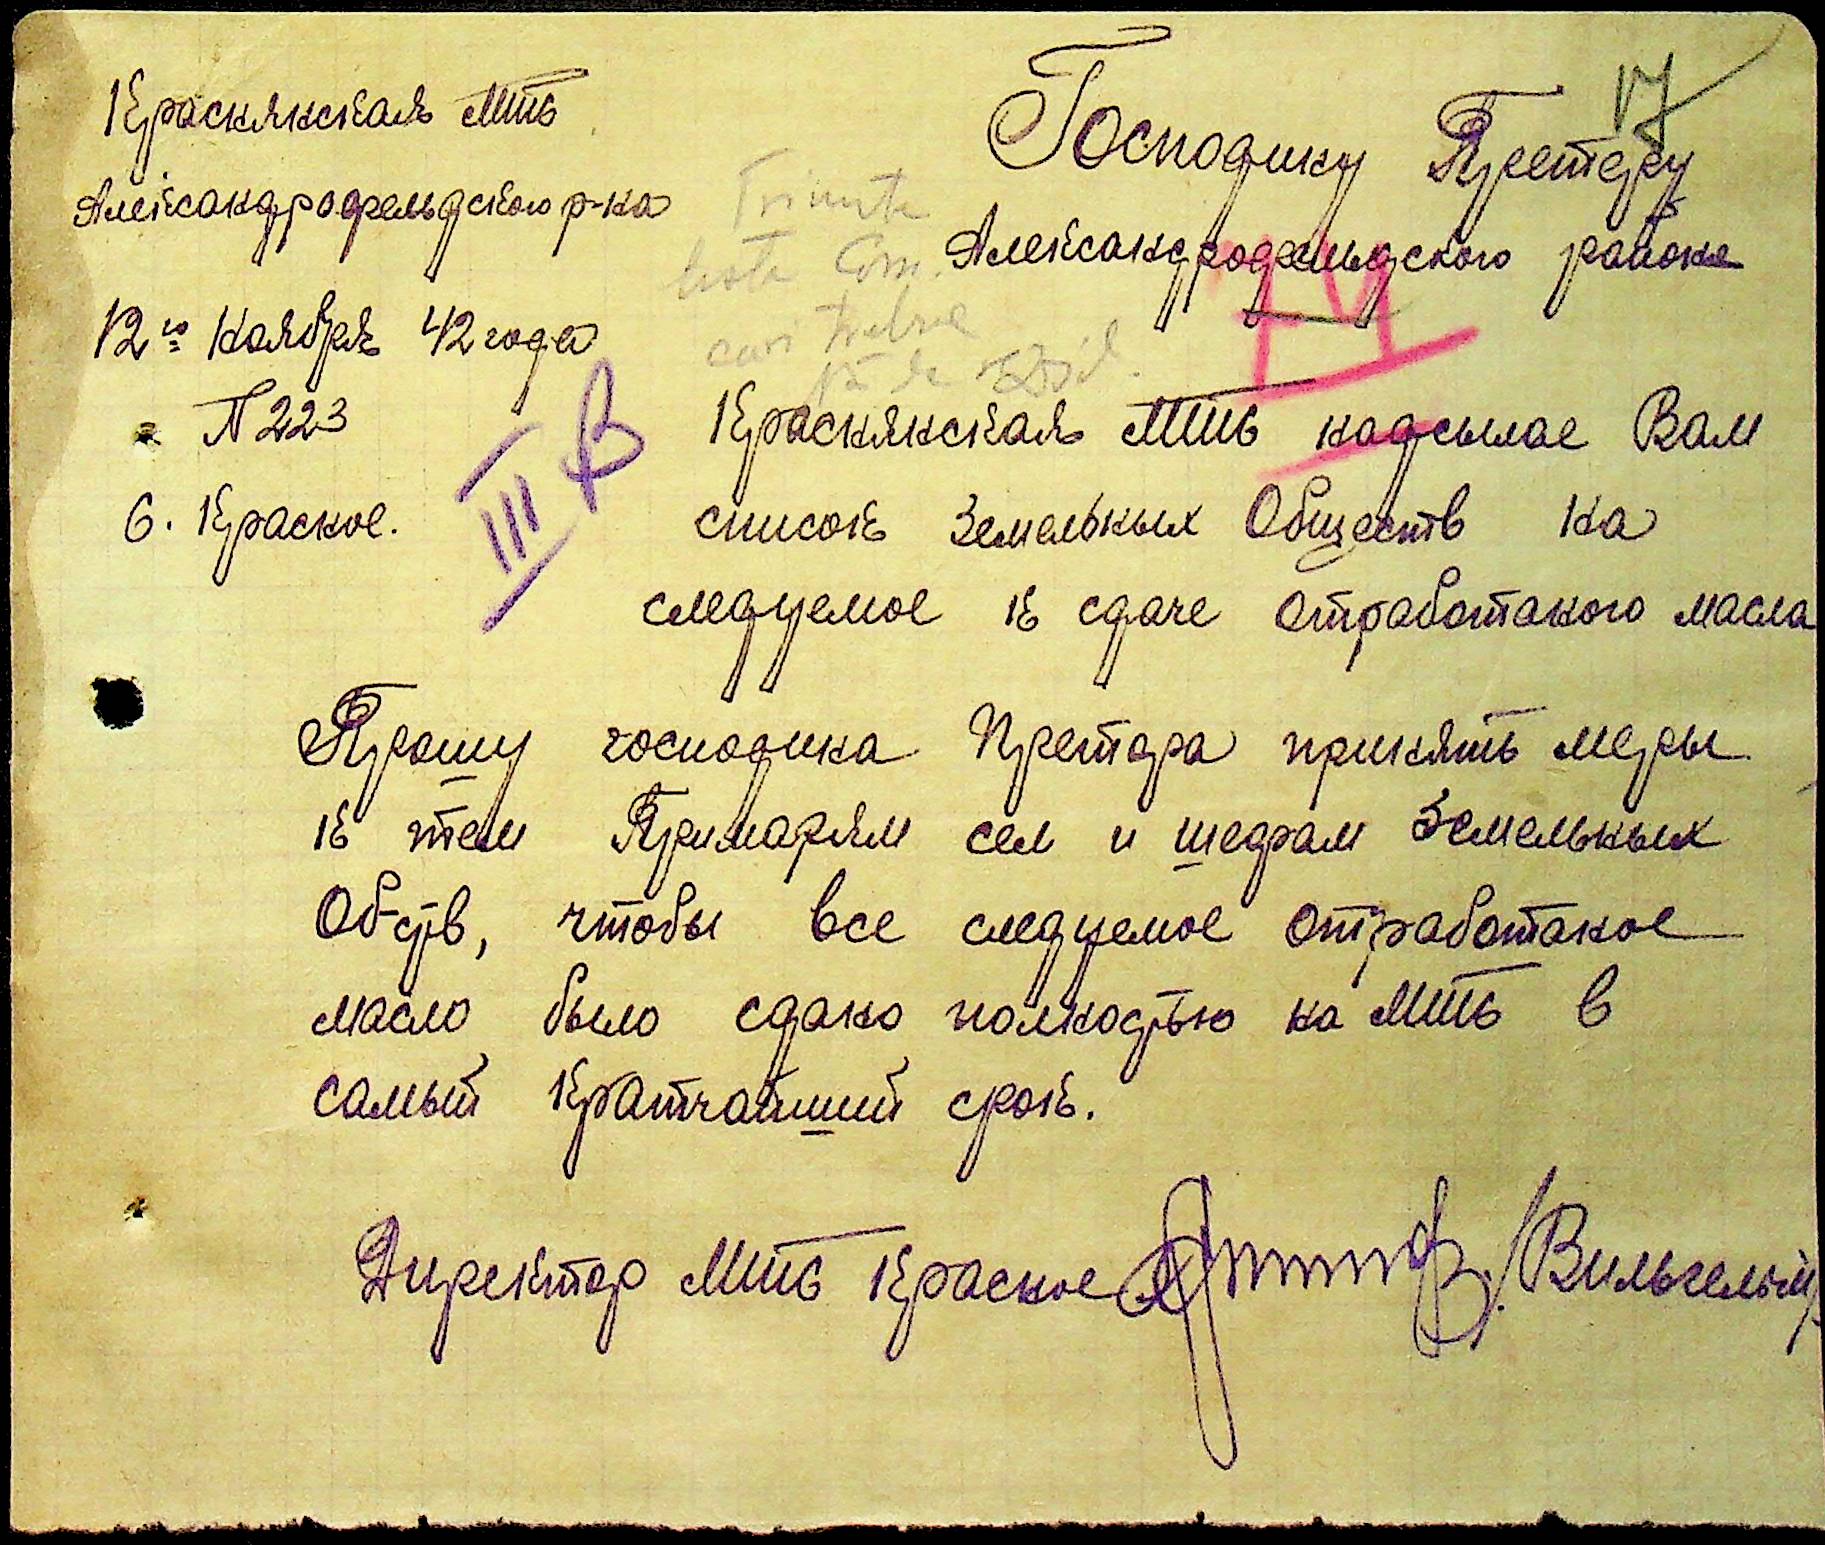 Краснянская МТС
Александрофельдского р-на
12го Ноября 42 года
N 223
С. Красное.
III В
17
Господину Претору
Александрофельдского района
IV
Trimite
nota Com.
cari trebue
să se
Краснянская МТС надсылае Вам
список Земельных Обществ на
следуемое к сдаче отработаного масла
Прошу господина Претора принять меры
к тем Примарям сел и шефам Земельных
Об-ств, чтобы все следуемое отработаное
масло было сдано полностью на МТС в
самый кратчайший срок.
Директор МТС Красное /Вильгельм/